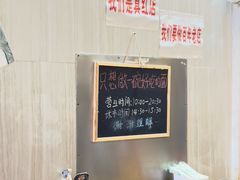 我们是真红店
我们要做百年老店
只想做一碗好吃的面
营业时间:10:00-20:30
休市时间:14:30-15:30
谢谢理解